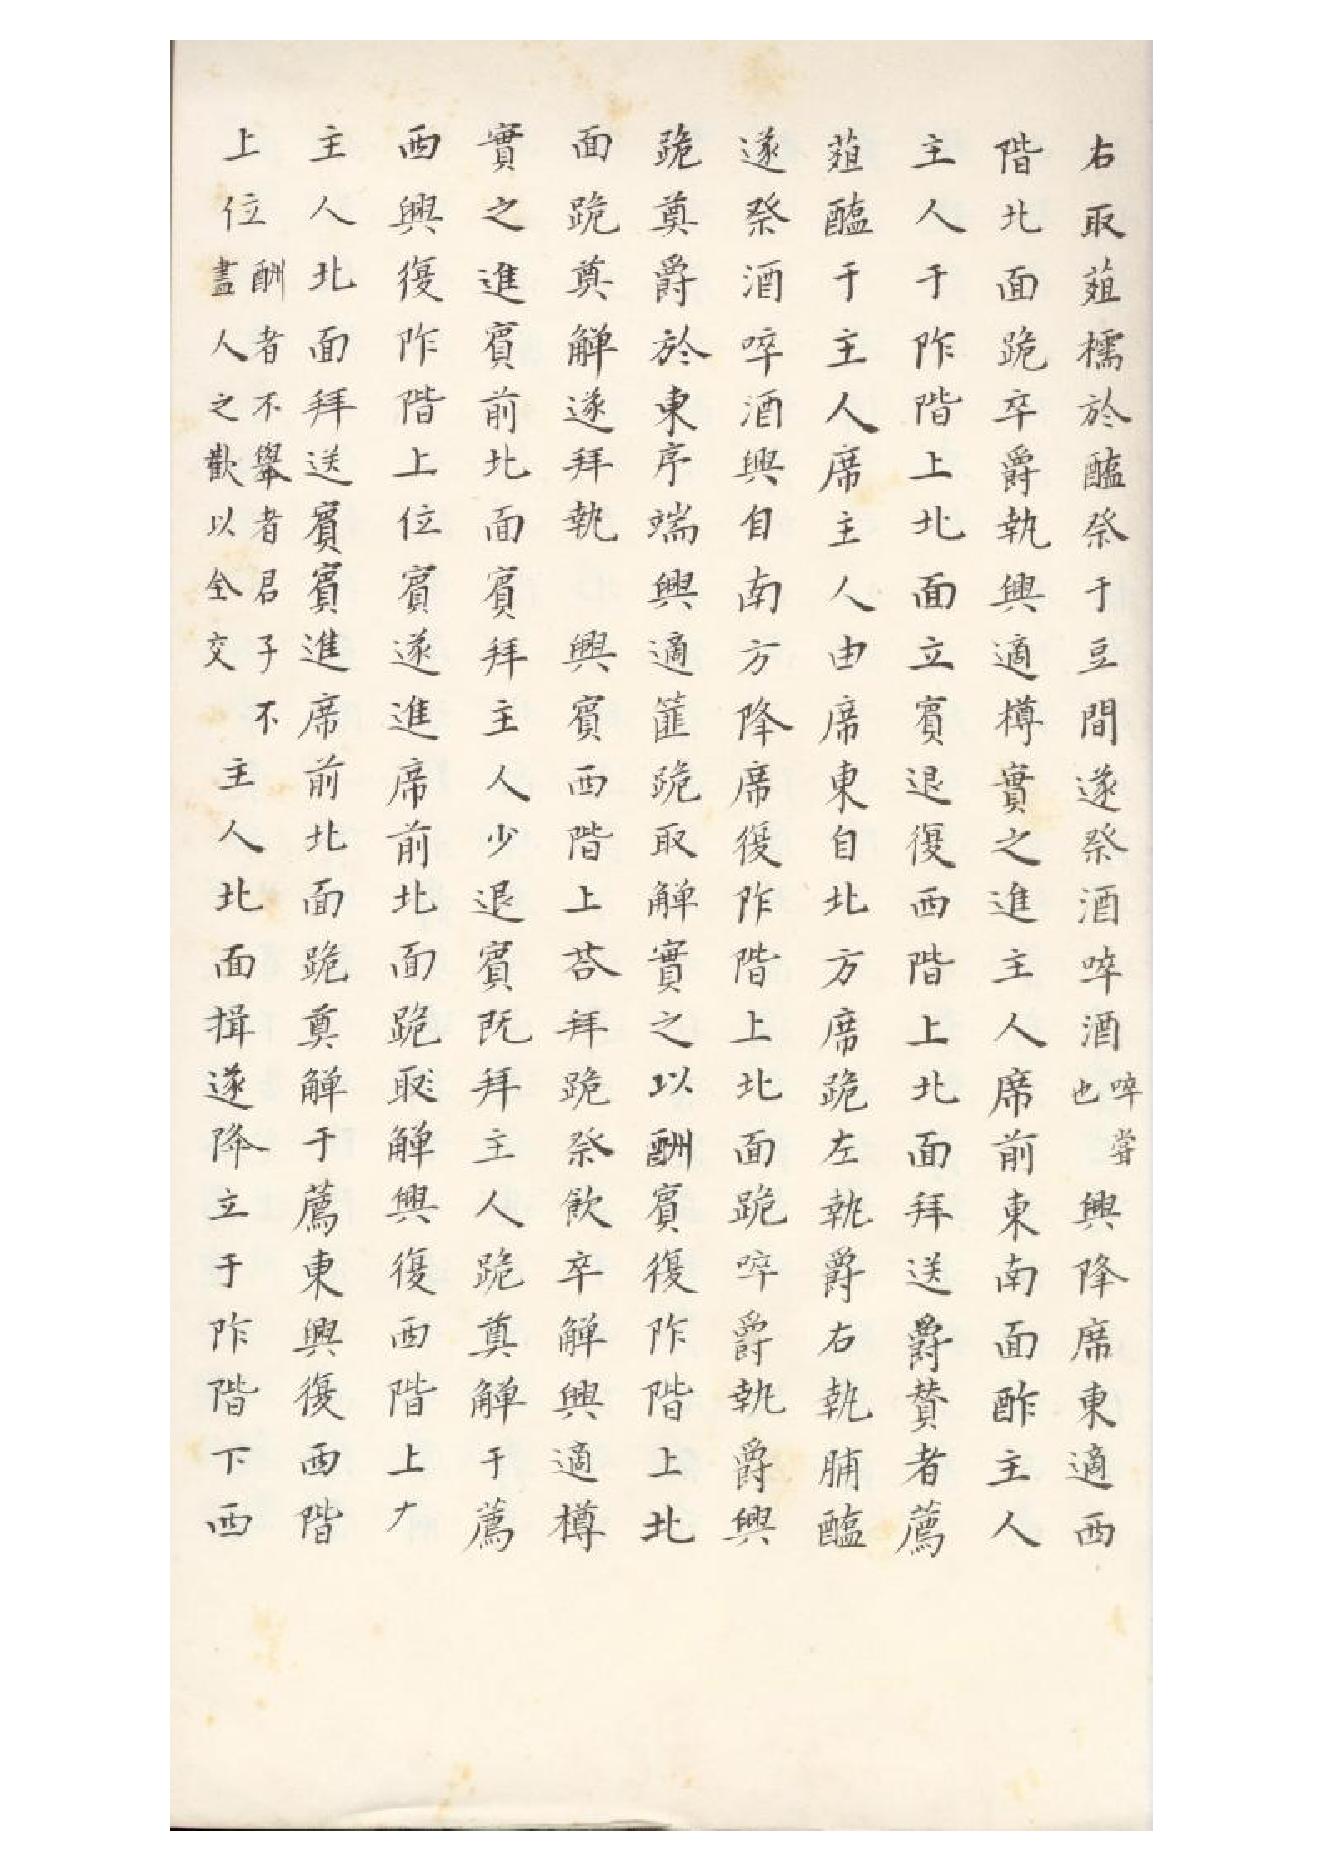 右取菹㨎於醢祭于豆間遂祭酒啐酒啐嘗也興降席東適西
階北面跪卒爵執興適樽實之進主人席前東南面酢主人
主人于阼階上北面立賓退復西階上北面拜送爵贊者薦
菹醢于主人席主人由席東自北方席跪左執爵右執脯醢
遂祭酒啐酒興自南方降席復阼階上北面跪啐爵執爵興
跪奠爵於東序端興適篚跪取觶實之以酬賓復阼階上北
面跪奠觶遂拜執 興賓西階上荅拜跪祭飲卒觶興適樽
實之進賓前北面賓拜主人少退賓既拜主人跪奠觶于薦
西興復阼階上位賓遂進席前北面跪取觶興復西階上
主人北面拜送賓賓進席前北面跪奠觶于薦東興復西階
上位酬者不舉者君子不盡人之歡以全交主人北面揖遂降立于阼階下西